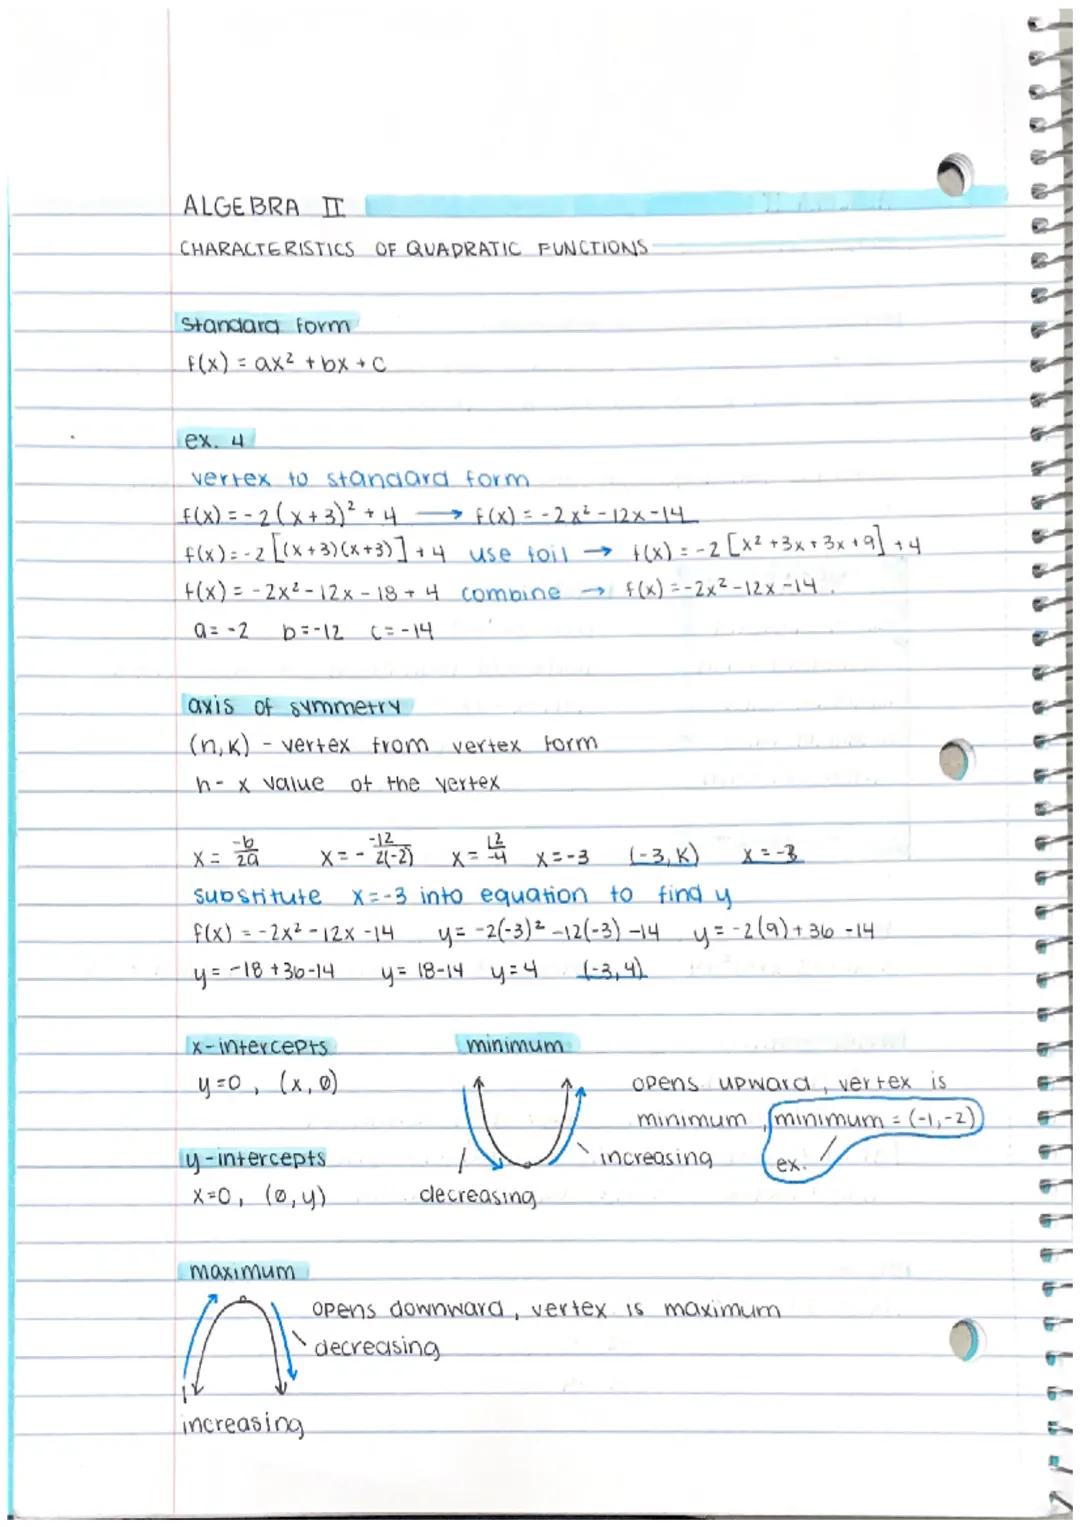 ALGEBRA II
CHARACTERISTICS OF QUADRATIC FUNCTIONS
standard form
f(x) = ax² + bx + c
ex. 4
vertex to standard form
f(x) = -2(x+3)² + 4 → f(x) = -2x² - 12x - 14
f(x) = -2[(x+3)(x+3)] + 4 use foil → f(x) = -2[x² + 3x + 3x + 9] + 4
f(x) = -2x² - 12x - 18 + 4 combine → f(x) = -2x² - 12x - 14
a = -2 b = -12 c = -14
axis of symmetry
(h, k) - vertex from vertex form
h - x value of the vertex
x = -b/2a x = - -12/2(-2) x = 12/-4 x = -3 (-3, k) x = -3
substitute x = -3 into equation to find y
f(x) = -2x² - 12x - 14 y = -2(-3)² - 12(-3) - 14 y = -2(9) + 36 - 14
y = -18 + 36 - 14 y = 18 - 14 y = 4 (-3, 4)
x-intercepts minimum
y = 0, (x, 0) opens upward, vertex is
minimum, minimum = (-1, -2)
y-intercepts increasing ex.
x = 0, (0, y) decreasing
maximum
opens downward, vertex is maximum
decreasing
increasing